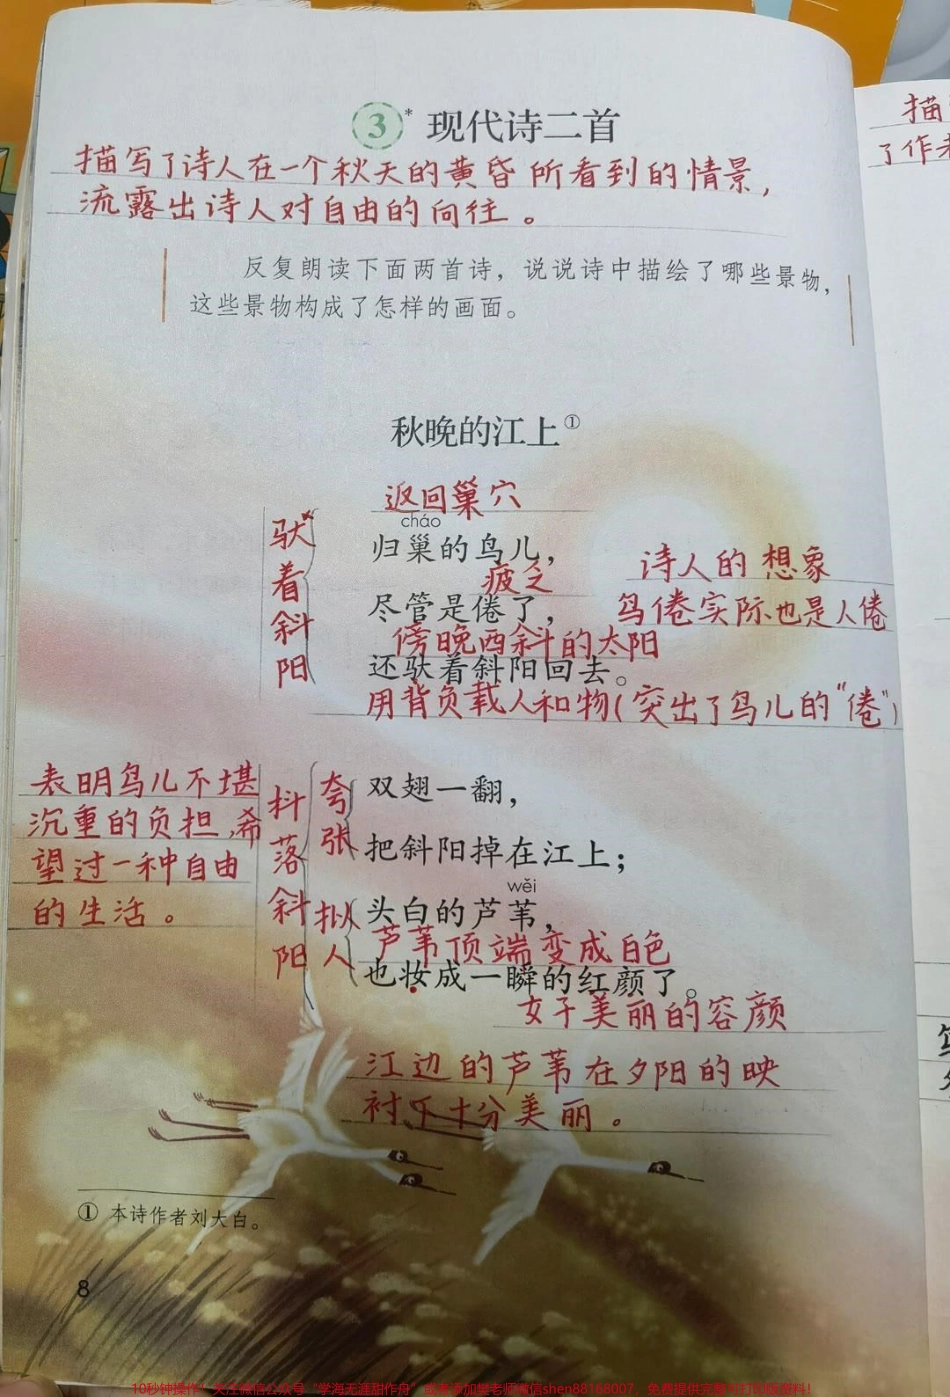 ③* 现代诗二首
描写了诗人在一个秋天的黄昏所看到的情景，
流露出诗人对自由的向往。
反复朗读下面两首诗，说说诗中描绘了哪些景物，
这些景物构成了怎样的画面。
秋晚的江上①
返回巢穴
cháo
归巢的鸟儿，
疲乏
诗人的想象
尽管是倦了，
鸟倦实际也是人倦
傍晚西斜的太阳
还驮着斜阳回去。
用背负载人和物（突出了鸟儿的“倦”）
驮着斜阳
双翅一翻，
把斜阳掉在江上；
wěi
头白的芦苇，
芦苇顶端变成白色
也妆成一瞬的红颜了。
女子美丽的容颜
夸张
拟人
抖落斜阳
表明鸟儿不堪
沉重的负担，希
望过一种自由
的生活。
江边的芦苇在夕阳的映
衬下十分美丽。
① 本诗作者刘大白。
8
描
了作者
10秒钟操作！关注微信公众号“学海无涯甜作舟”
微信shen88168007，免费提供完整可打印版资料！